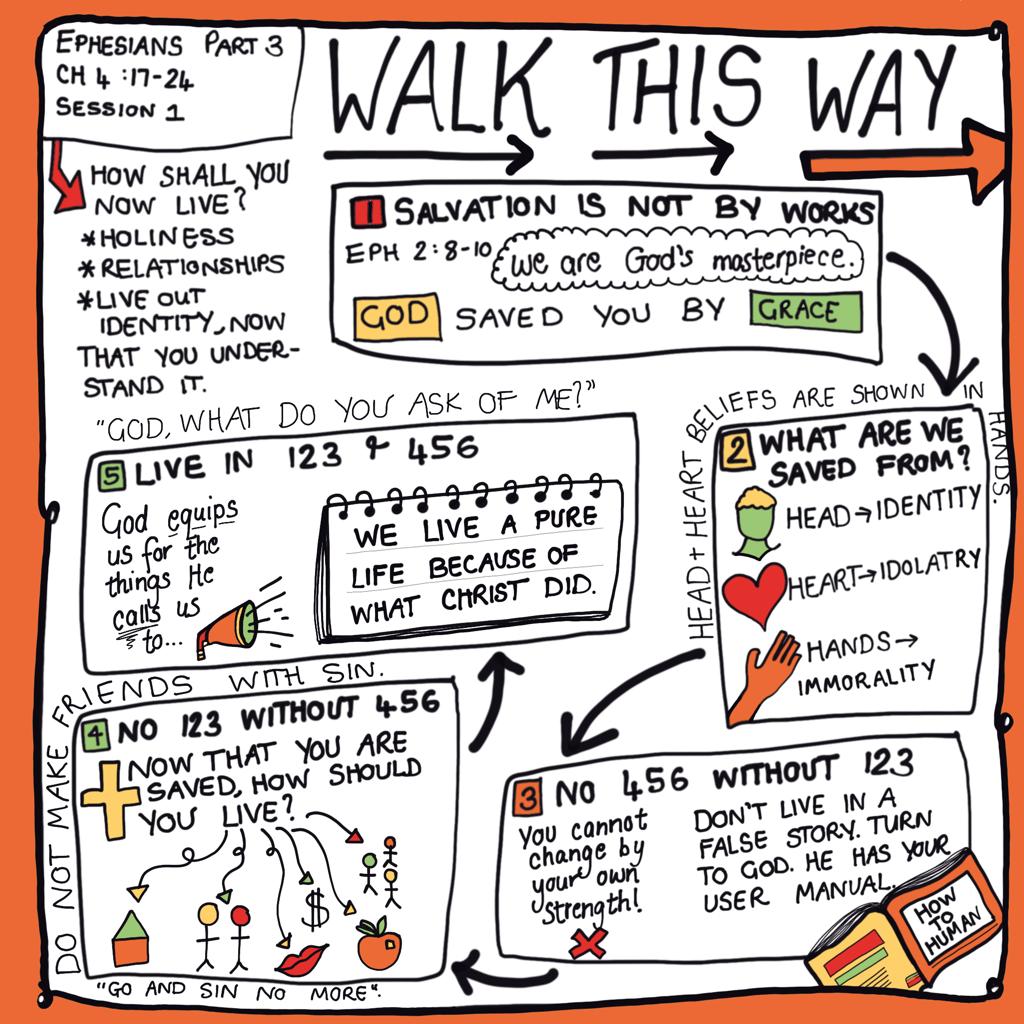 EPHESIANS PART 3
CH 4 :17-24
SESSION 1
WALK THIS WAY
HOW SHALL YOU
NOW LIVE?
*HOLINESS
*RELATIONSHIPS
*LIVE OUT
IDENTITY, NOW
THAT YOU UNDER-
STAND IT.
1 SALVATION IS NOT BY WORKS
EPH 2:8-10 we are God's masterpiece.
GOD SAVED YOU BY GRACE
HEAD + HEART BELIEFS ARE SHOWN IN HANDS.
2 WHAT ARE WE
SAVED FROM?
HEAD→IDENTITY
HEART→IDOLATRY
HANDS→
IMMORALITY
3 NO 456 WITHOUT 123
You cannot
change by
your own
strength!
DON'T LIVE IN A
FALSE STORY. TURN
TO GOD. HE HAS YOUR
USER MANUAL.
HOW
TO
HUMAN
DO NOT MAKE FRIENDS WITH SIN.
4 NO 123 WITHOUT 456
NOW THAT YOU ARE
SAVED, HOW SHOULD
YOU LIVE?
$
"GO AND SIN NO MORE".
"GOD, WHAT DO YOU ASK OF ME?"
5 LIVE IN 123 & 456
God equips
us for the
things He
calls us
to...
WE LIVE A PURE
LIFE BECAUSE OF
WHAT CHRIST DID.